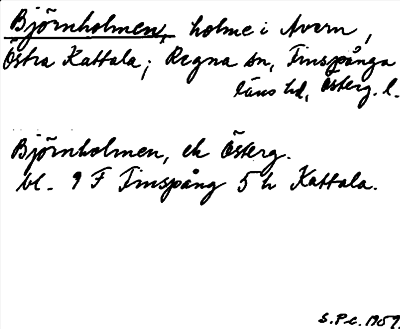 Björnholmen, holme i Avern,
Östra Kattala; Regna sn, Finspånga
läns hd, Österg. l.
Björnholmen, ek Österg.
bl. 9 F Finspång 5 h Kattala.
S.Pe. 1959.